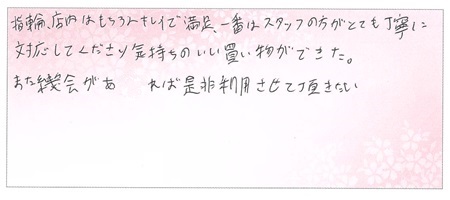 指輪、店内はもちろんキレイで満足、一番はスタッフの方がとても丁寧に
対応してくださり気持ちのいい買い物ができた。
また機会があ れば是非利用させて頂きたい